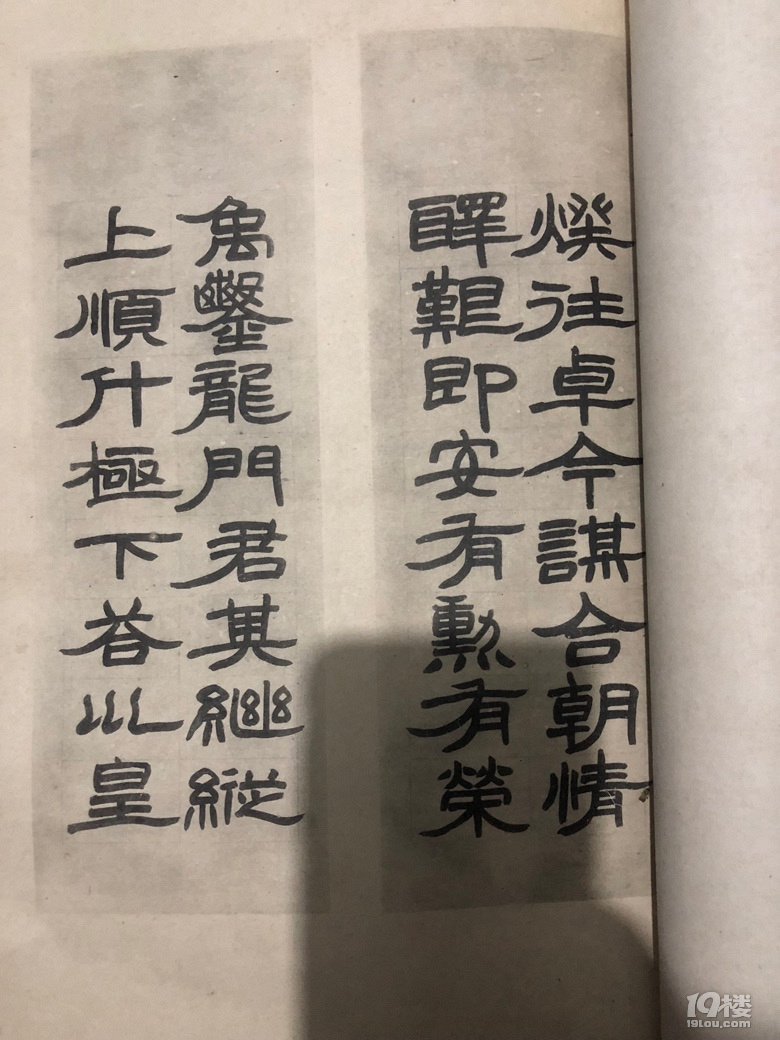 揆往卓今謀合朝情
醳艱即安有勳有榮
禹鑿龍門君其繼縱
上順斗極下荅巛皇
19楼
19lou.com